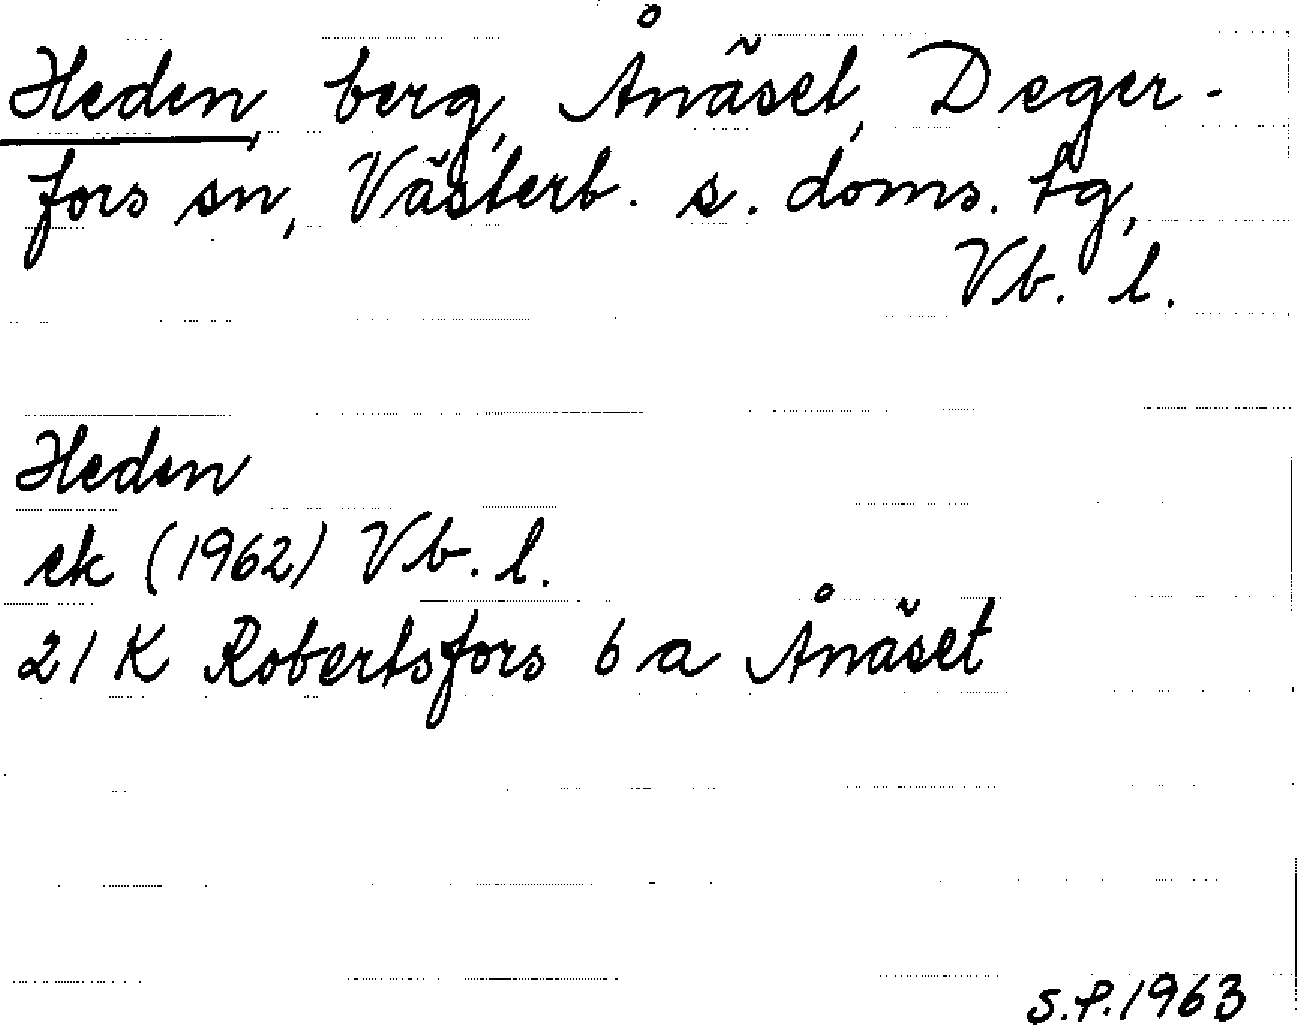 Heden, berg, Ånäset, Deger-
fors sn, Västerb. s. doms. tg,
Vb. l.
Heden
ek (1962) Vb. l.
21 K Robertsfors 6 a Ånäset
S.P. 1963